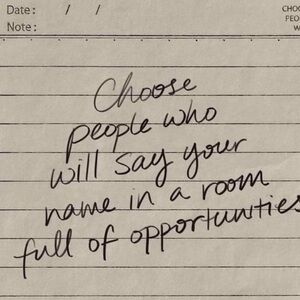 Date: / /
Note:
CHOO
PEO
W
Choose
people who
will say your
name in a room
full of opportunities